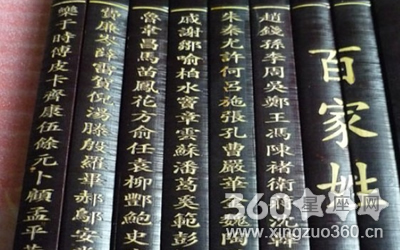 百家姓
趙錢孫李周吳鄭王馮陳褚衛蔣沈韓
朱秦尤許何呂施張孔曹嚴華金魏陶
戚謝鄒喻柏水竇章雲蘇潘葛奚範彭
魯韋昌馬苗鳳花方俞任袁柳酆鮑史
費廉岑薛雷賀倪湯滕殷羅畢郝鄔安
樂于時傅皮卡齊康伍餘元卜顧孟平
360星座网
www.xingzuo360.cn